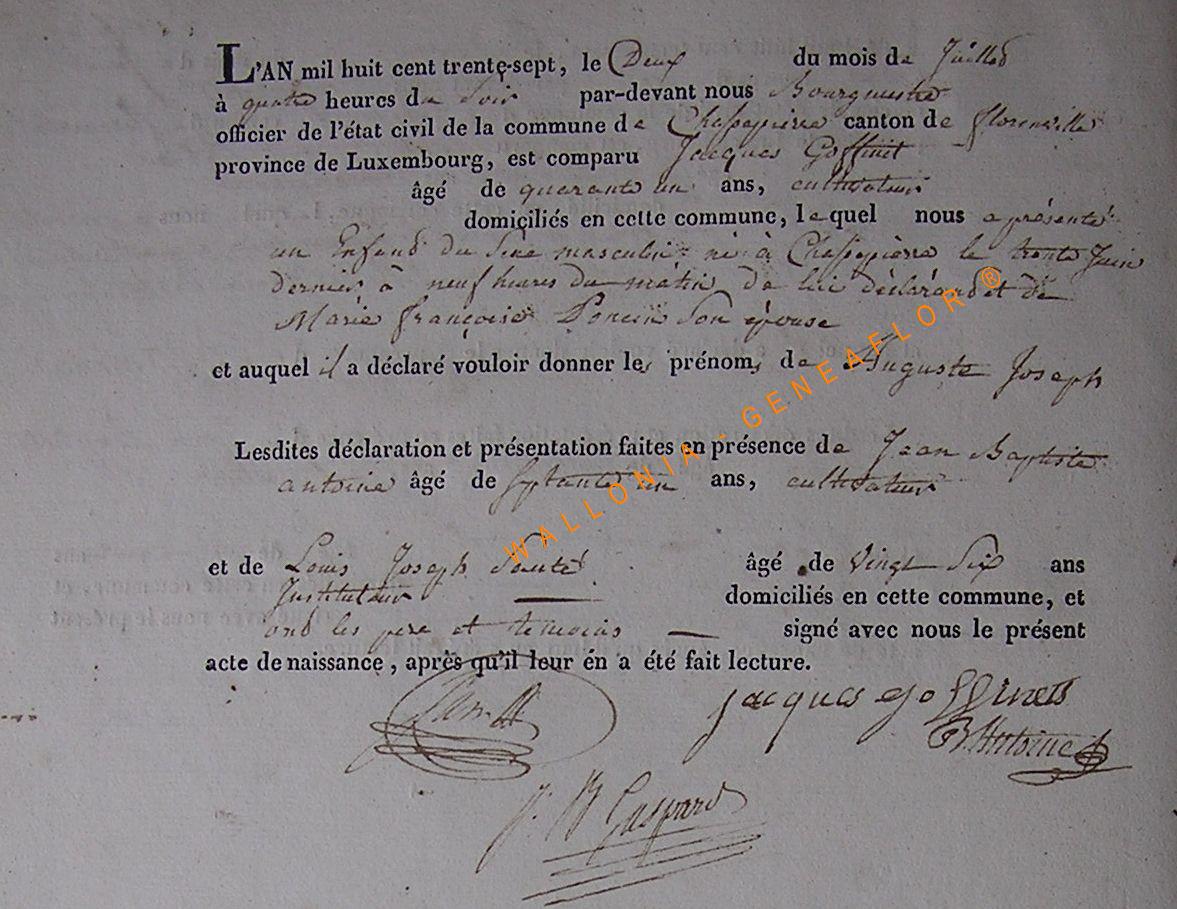 L'AN mil huit cent trente-sept, le Deux du mois de Juillet
à quatre heures du Soir par-devant nous Bourgmestre
officier de l'état civil de la commune de Chassepierre canton de florenville
province de Luxembourg, est comparu Jacques Goffinet
âgé de quarante un ans, cultivateur
domiciliés en cette commune, lequel nous a présenté
un Enfant du Sexe masculin né à Chassepierre le trente Juin
dernier à neuf heures du matin de lui déclarant et de
Marie françoise Poncin Son épouse
et auquel il a déclaré vouloir donner les prénoms de Auguste Joseph
Lesdites déclaration et présentation faites en présence de Jean Baptiste
antoine âgé de Septante un ans, cultivateur
et de Louis Joseph âgé de Vingt Six ans
Instituteur domiciliés en cette commune, et
ont les pere et temoins signé avec nous le présent
acte de naissance, après qu'il leur en a été fait lecture.
jacques goffinet
B Antoine
J. B Gaspard
WALLONIA - GENEAFLOR ®